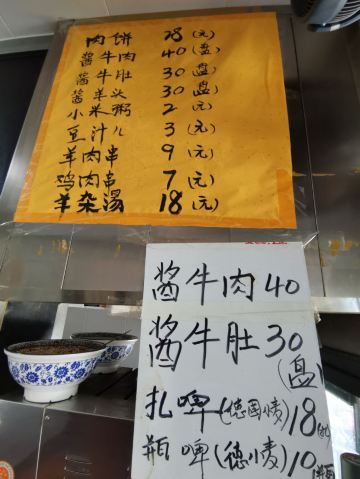 肉饼 28(元)
酱牛肉 40(盘)
酱牛肚 30(盘)
酱羊头 30(盘)
小米粥 2(元)
豆汁儿 3(元)
羊肉串 9(元)
鸡肉串 7(元)
羊杂汤 18(元)
酱牛肉40
酱牛肚30
(盘)
扎啤(德国小麦)18
瓶啤(德小麦)10(瓶)